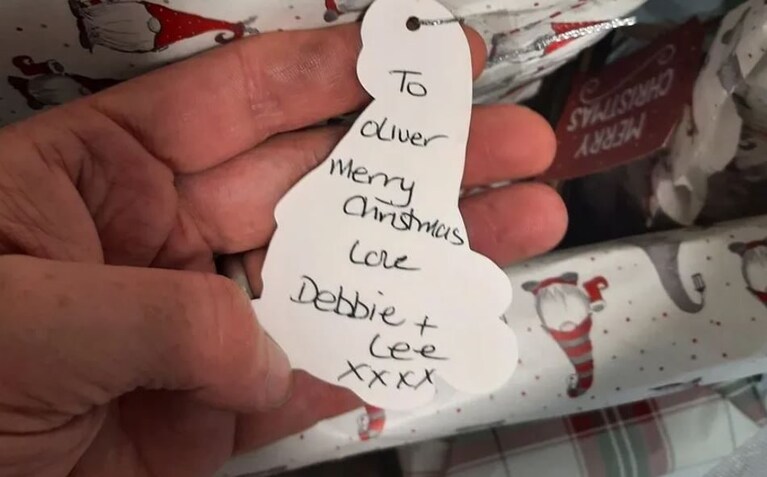 To
oliver
Merry
Christmas
Love
Debbie +
Lee
xxxx
MERRY
CHRISTMAS